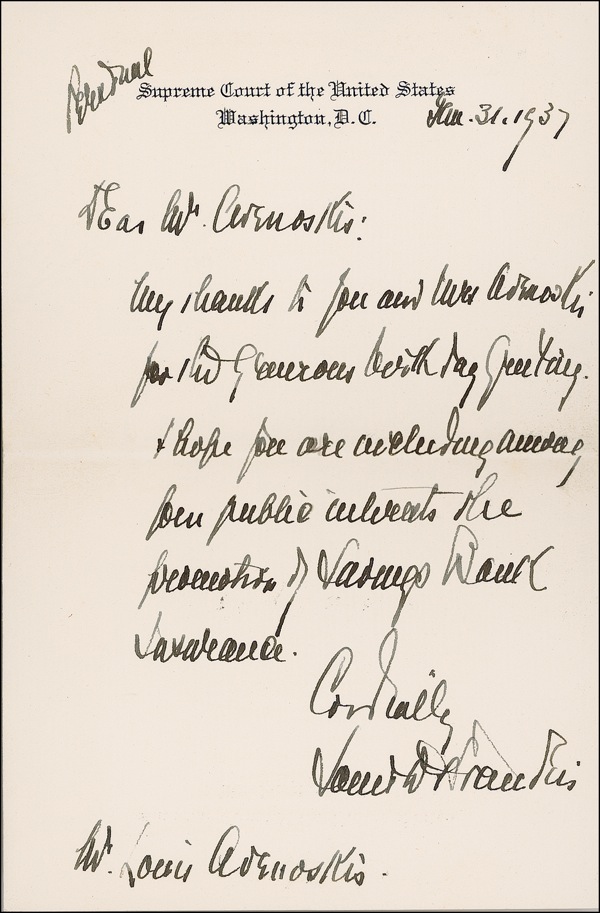 Personal
Supreme Court of the United States
Washington, D.C.
Jan. 31. 1937
Dear Mr.
My thanks to you and Mrs
for the generous birthday greeting.
I hope you are including among
your public interests the
promotion of Savings Bank
Insurance.
Cordially
Louis D Brandeis
Mr. Louis